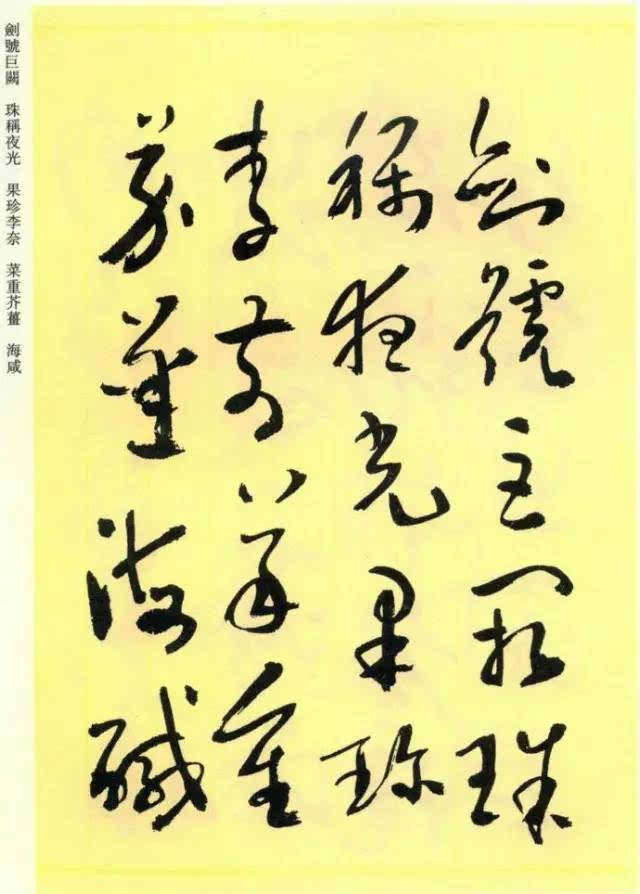 劍號巨闕珠
稱夜光果珍
李柰菜重
芥薑海鹹
劍號巨闕 珠稱夜光 果珍李奈 菜重芥薑 海咸